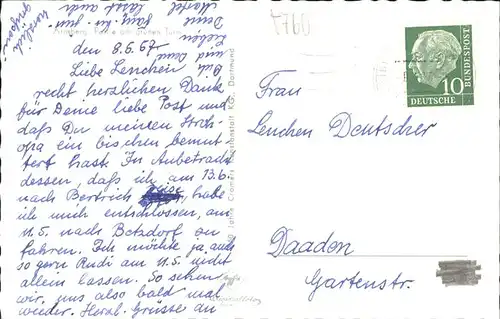 4760
den 8.6.67
Liebe Lenchen!
recht herzlichen Dank
für Deine liebe Post und
daß Du meinen Stroh-
opa ein bischen bemut-
tert hast. In Anbetracht
dessen, daß ich am 13.6.
nach Bertrich reise, habe
ich mich entschlossen, am
11.5. nach Botzdorf zu
fahren. Ich möchte ja auch
so gern Rudi am 11.5. nicht
allein lassen. So sehen
wir uns also bald mal
wieder. Herzl. Grüsse an
Frau
Lenchen Deutscher
Daaden
Gartenstr.
DEUTSCHE
BUNDESPOST
10
Cramers Kunstanstalt KG., Dortmund